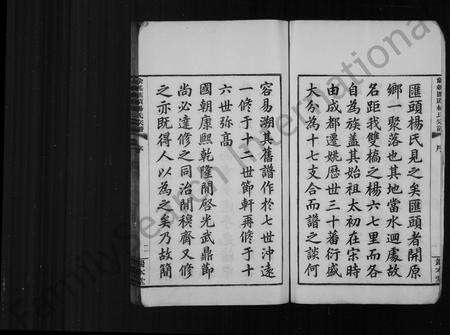 匯頭楊氏見之矣匯頭者開原
鄉一聚落也其地當水迴處故
名距我雙橋之楊六七里而各
自為族蓋其始祖太初在宋時
由成都遷姚歷世三十蕃衍盛
大分為十七支合而譜之談何
容易溯其舊譜作於七世沖遠
一修于十二世節軒再修于十
六世弥高
國朝康熙乾隆間啓光武鼎節
尚必達修之同治間穆齋又修
之亦既得人以為之矣乃故簡
FamilySearch International